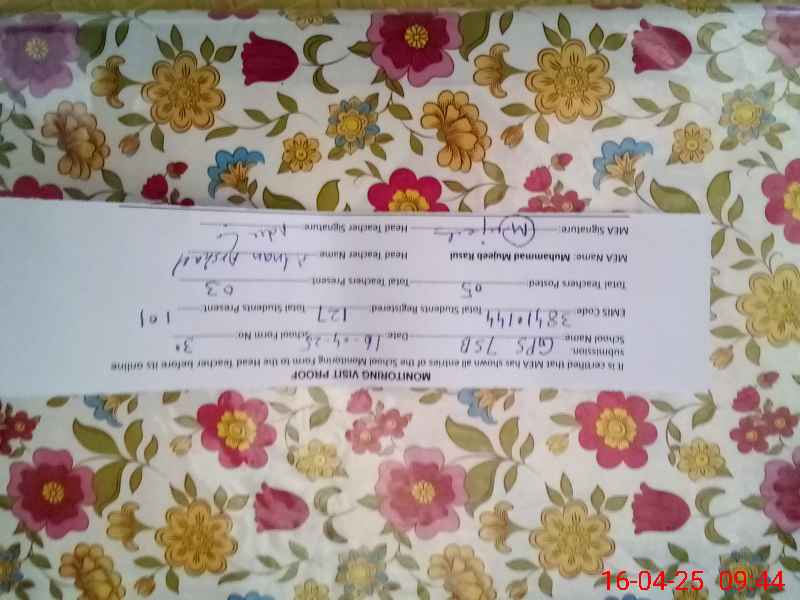 MONITORING VISIT PROOF
It is certified that MEA has shown all entries of the School Monitoring Form to the Head Teacher before its online
submission.
School Name: GPS 75B Date: 16-04-25 School Form No. 30
EMIS Code: 38410144 Total Students Registered: 127 Total Students Present: 101
Total Teachers Posted: 05 Total Teachers Present: 03
MEA Name: Muhammad Mujeeb Rasul Head Teacher Name Adnan Arshad
MEA Signature: Mujeeb Head Teacher Signature
16-04-25 09:44